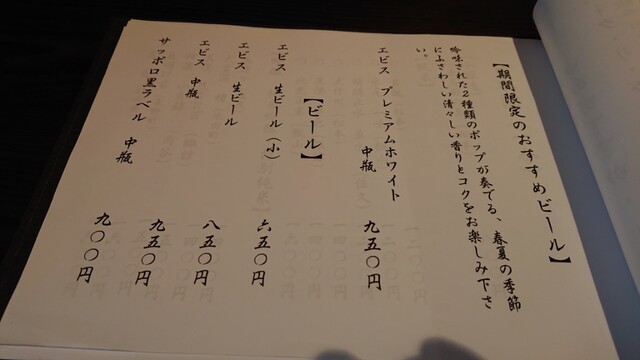 【期間限定のおすすめビール】
吟味された2種類のホップが奏でる、春夏の季節
にふさわしい清々しい香りとコクをお楽しみ下さ
い。
エビス プレミアムホワイト
中瓶 九五〇円
【ビール】
エビス 生ビール（小） 六五〇円
エビス 生ビール 八五〇円
エビス 中瓶 九五〇円
サッポロ黒ラベル 中瓶 九〇〇円